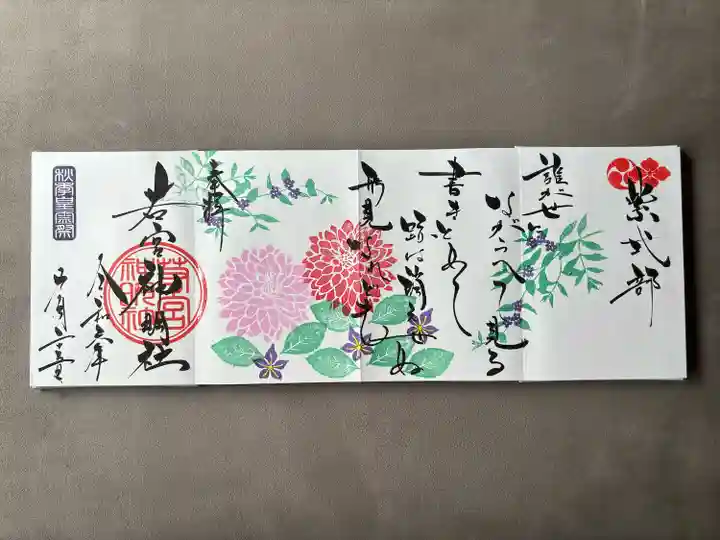 紫式部
誰か世に
ながらへて見る
書きとめし
跡は消えせぬ
形見なれども
奉拝
若宮神明社
若宮神明社
令和六年
秋季皇霊祭